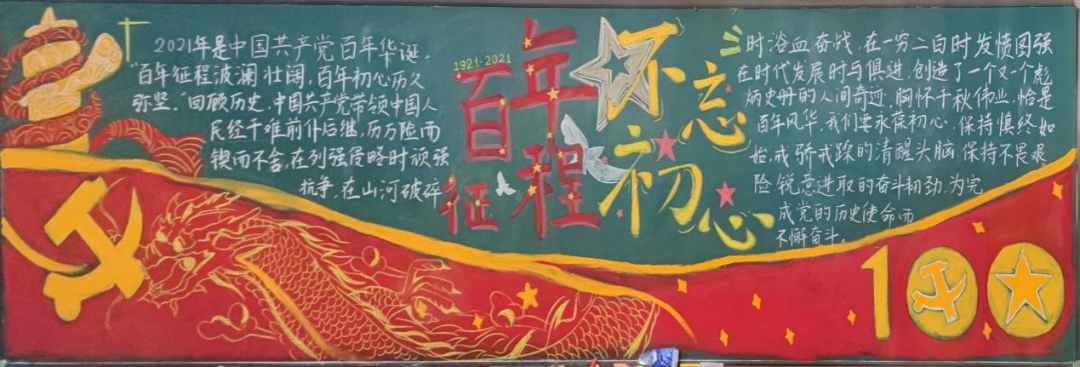 2021年是中国共产党百年华诞。
"百年征程波澜壮阔,百年初心历久
弥坚。"回顾历史,中国共产党带领中国人
民经千难前仆后继,历万险而
锲而不舍,在列强侵略时顽强
抗争,在山河破碎
1921-2021
百年
征程
不忘
初心
时浴血奋战,在一穷二白时发愤图强
在时代发展时与俱进,创造了一个又一个彪
炳史册的人间奇迹,胸怀千秋伟业,恰是
百年风华,我们要永保初心,保持慎终如
始,戒骄戒躁的清醒头脑,保持不畏艰
险锐意进取的奋斗韧劲,为完
成党的历史使命而
不懈奋斗。
100